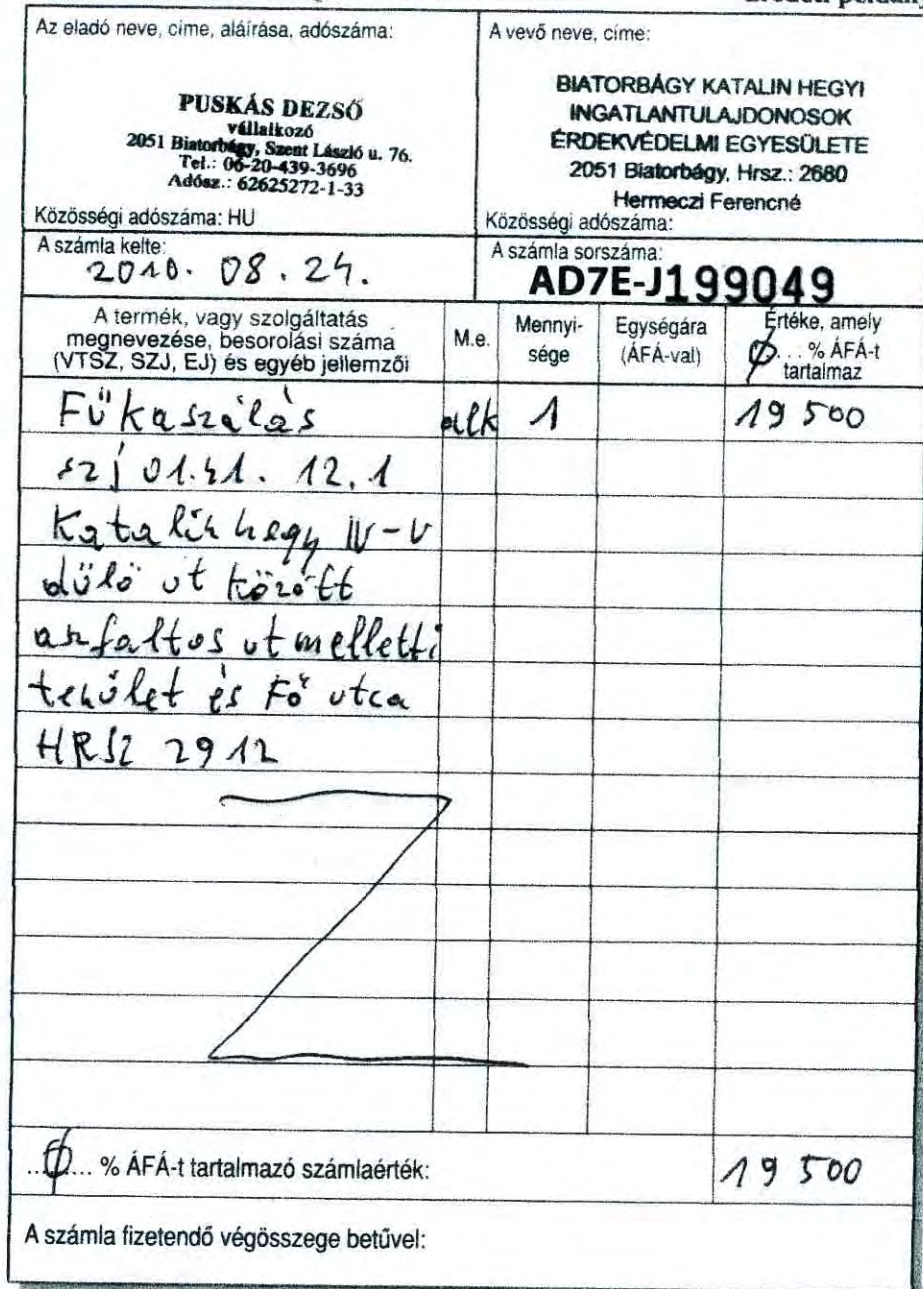 Az eladó neve, címe, aláírása, adószáma:
PUSKÁS DEZSŐ
vállalkozó
2051 Biatorbágy, Szent László u. 76.
Tel.: 06-20-439-3696
Adósz.: 62625272-1-33
Közösségi adószáma: HU
A vevő neve, címe:
BIATORBÁGY KATALIN HEGYI
INGATLANTULAJDONOSOK
ÉRDEKVÉDELMI EGYESÜLETE
2051 Biatorbágy, Hrsz.: 2680
Hermeczi Ferencné
Közösségi adószáma:
A számla kelte:
2010. 08. 24.
A számla sorszáma:
AD7E-J199049
A termék, vagy szolgáltatás
megnevezése, besorolási száma
(VTSZ, SZJ, EJ) és egyéb jellemzői
M.e.
Mennyi-
sége
Egységára
(ÁFÁ-val)
Értéke, amely
0... % ÁFÁ-t
tartalmaz
Fűkaszálás alk 1 19 500
szj 01.41. 12.1
Katalin hegy IV-V
dülö út között
aszfaltos út melletti
terület és Fő utca
HRSZ 2912
...0... % ÁFÁ-t tartalmazó számlaérték: 19 500
A számla fizetendő végösszege betűvel: